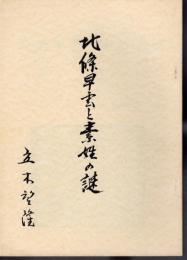 北條早雲と素姓の謎
立木望隆